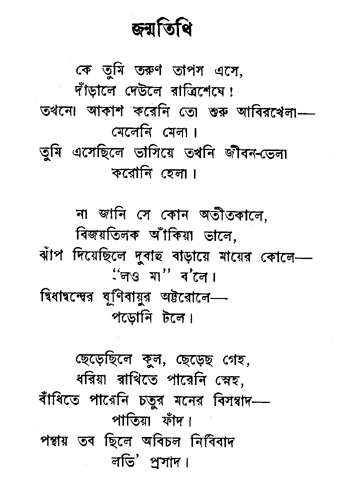 জন্মতিথি
কে তুমি তরুণ তাপস এসে,
দাঁড়ালে দেউলে রাত্রিশেষে!
তখনো আকাশ করেনি তো শুরু আবিরখেলা—
মেলেনি মেলা।
তুমি এসেছিলে ভাসিয়ে তখনি জীবন-ভেলা
করোনি হেলা।
না জানি সে কোন অতীতকালে,
বিজয়তিলক আঁকিয়া ভালে,
ঝাঁপ দিয়েছিলে দুবাহু বাড়ায়ে মায়ের কোলে—
“লও মা” ব’লে।
দ্বিধাদ্বন্দ্বের ঘূর্ণিবায়ুর অট্টরোলে—
পড়োনি টলে।
ছেড়েছিলে কুল, ছেড়েছ গেহ,
ধরিয়া রাখিতে পারেনি স্নেহ,
বাঁধিতে পারেনি চতুর মনের বিসম্বাদ—
পাতিয়া ফাঁদ।
পন্থায় তব ছিলে অবিচল নির্বিবাদ
লভি’ প্রসাদ।